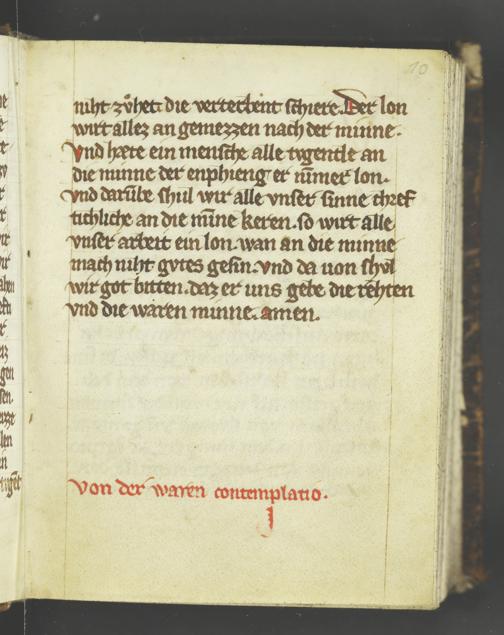 10
niht zvͦhet die verterbent schiere. Der lon
wirt allez an gemezzen nach der minne.
Vnd hæte ein mensche alle tvgentle an
die minne der enphieng er nim̄er lon.
vnd darūbe shul wir alle vnser sinne chref
tichliche an die mīne keren. so wirt alle
vnser arbeit ein lon. wan an die minne
mach niht gvtes gesin. vnd da uon shvl
wir got bitten. daz er uns gebe die rehten
vnd die waren minne. amen.
von der waren contemplatio.